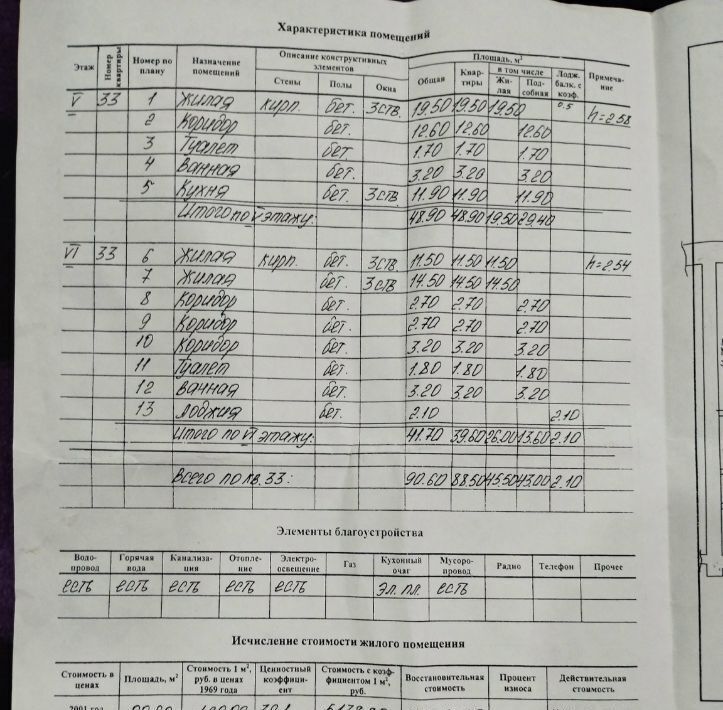 Характеристика помещений
Этаж Номер квартиры Номер по плану Назначение помещений Описание конструктивных элементов Площадь, м²
Стены Полы Окна Общая Квартиры в том числе Лодж. балк. с коэф. Примечание
Жилая Подсобная
V 33 1 Жилая кирп. бет. 3ств. 19.50 19.50 19.50 0.5 h=2.58
2 Коридор бет. 12.60 12.60 12.60
3 Туалет бет 1.70 1.70 1.70
4 Ванная бет. 3.20 3.20 3.20
5 Кухня бет. 3ств 11.90 11.90 11.90
Итого по V этажу: 48.90 48.90 19.50 29.40
VI 33 6 Жилая кирп. бет. 3ств. 11.50 11.50 11.50 h=2.54
7 Жилая бет. 3ств 14.50 14.50 14.50
8 Коридор бет. 2.70 2.70 2.70
9 Коридор бет. 2.70 2.70 2.70
10 Коридор бет. 3.20 3.20 3.20
11 Туалет бет. 1.80 1.80 1.80
12 Ванная бет. 3.20 3.20 3.20
13 Лоджия бет. 2.10 2.10
Итого по VI этажу: 41.70 39.60 26.00 13.60 2.10
Всего по кв. 33: 90.60 88.50 45.50 43.00 2.10
Элементы благоустройства
Водопровод Горячая вода Канализация Отопление Электроосвещение Газ Кухонный очаг Мусоропровод Радио Телефон Прочее
есть есть есть есть есть эл. пл. есть
Исчисление стоимости жилого помещения
Стоимость в ценах Площадь, м² Стоимость 1 м², руб. в ценах 1969 года Ценностный коэффициент Стоимость с коэффициентом 1 м², руб. Восстановительная стоимость Процент износа Действительная стоимость
2001 год